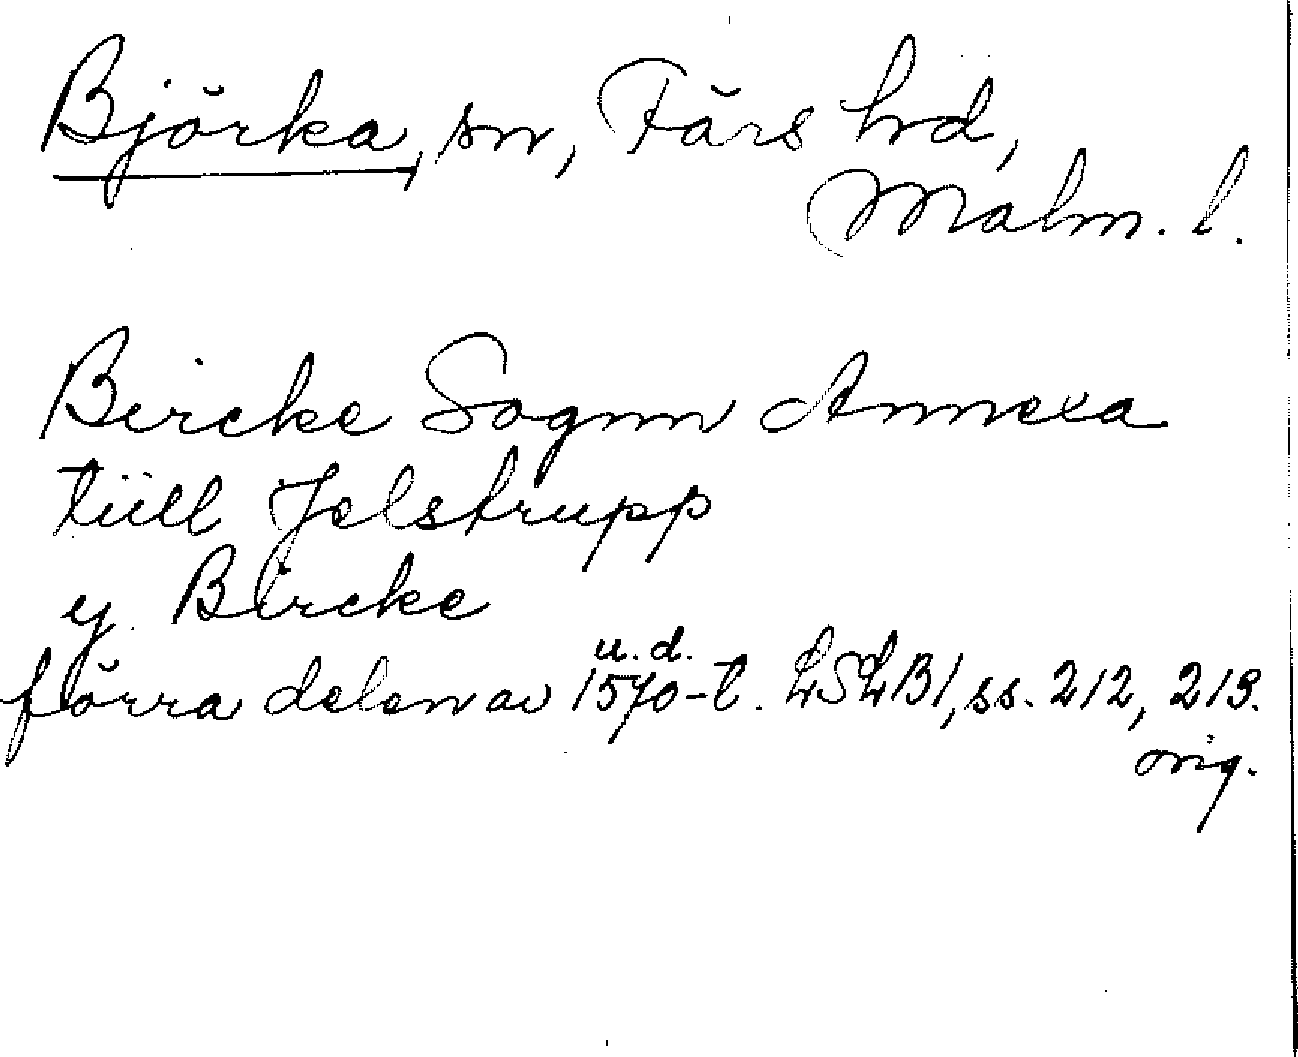 Björka, sn, Färs hd,
Malm. l.
Bircke Sognn Annexa
tiill Jelstrupp
y Bircke
u. d.
förra delen av 1570-t. LSLB1, ss. 212, 213.
orig.